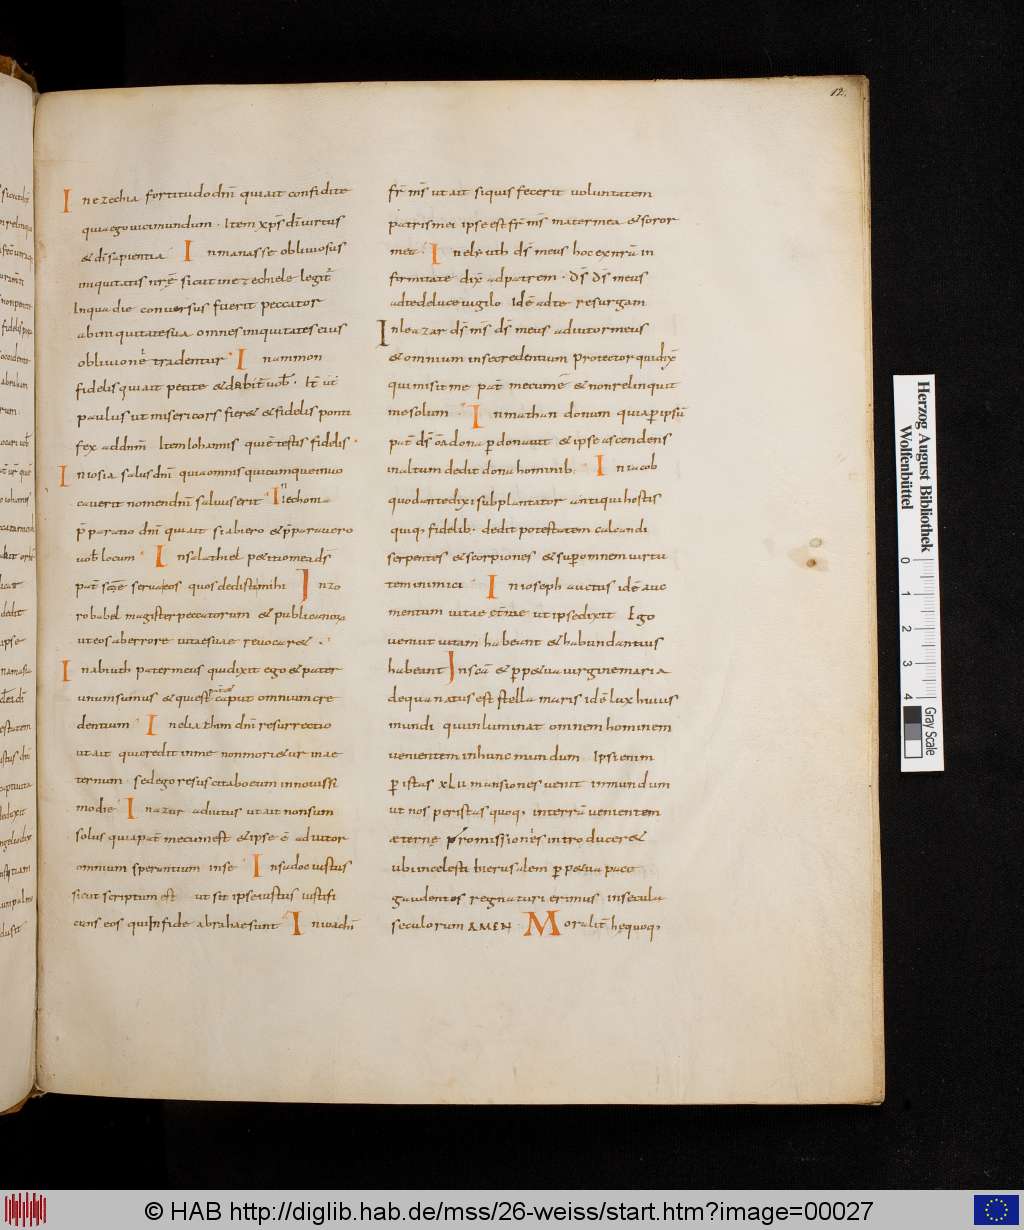 12.
In ezechia fortitudo dnī qui ait confidite
quia ego uici mundum · Item xp̄s dī uirtus
& dī sapientia In manasse obliuiosus
iniquitatis nrē sicut in ezechiele legit̄
In qua die conuersus fuerit peccator
ab iniquitate sua omnes iniquitates eius
obliuioni tradentur · In ammon
fidelis qui ait petite & dabit̄ uob̄ · It̄
paulus ut misericors fier& & fidelis ponti
fex ad dnm̄ Item Iohannis qui ē testis fidelis ·
In iosia salus dnī quia omnis quicumque inuo
cauerit nomen dnī saluus erit · In iechonia
p̄paratio dnī qui ait si abiero & p̄parauero
uob̄ locum · In salathiel petitio mea ds̄
pat̄ sc̄e serua eos quos dedisti mihi In zo
robabel magister peccatorum & publicanorum
ut eos ab errore uitae suae reuocar& ·
In abiuth pater meus qui dixit ego & pater
unum sumus & qui est caput omnium cre
dentium · In eliachim dnī resurrectio
ut ait qui credit in me non mori&ur in ae
ternum sed ego resuscitabo eum in nouissi
mo die In azor adiutus ut ait non sum
solus quia pat̄ mecum est & ipse ē adiutor
omnium sperantium in se · In sadoc iustus
sicut scriptum est ut sit ipse iustus iustifi
cans eos qui in fide abrahae sunt In iachī
fr̄ ms̄ ut ait si quis fecerit uoluntatem
patris mei ipse est fr̄ ms̄ mater mea & soror
mea · In eliuth ds̄ meus hoc
firmitate dix̄ ad patrem · ds̄ ds̄ meus
ad te de luce uigilo Idē ad te resurgam
In leazar ds̄ ms̄ ds̄ meus adiutor meus
& omnium in se credentium protector qui dix̄
qui misit me pat̄ mecum ē & non relinquit
me solum · In mathan donum quia p̄ ipsū
pat̄ ds̄ om̄a dona p̄donauit & ipse ascendens
in altum dedit dona hominib; · In iacob
quod ante dixi subplantator antiqui hostis
quiq; fidelib; dedit potestatem calcandi
serpentes & scorpiones & sup̄ omnem uirtu
tem inimici · In ioseph auctus idē auc
mentum uitae &nae ut ipse dixit Ego
ueni ut uitam habeant & habundantius
habeant In sc̄a & p̄p&ua uirgine maria
de qua natus est stella maris idē lux huius
mundi qui inluminat omnem hominem
uenientem in hunc mundum Ipsi enim
p̄ istas xlii mansiones uenit in mundum
ut nos per istas quoq; in terrā uenientem
æterne promissionis introducer&
ubi in celesti hierusalem p̄p&ua pace
gaudentes regnaturi erimus in secula
seculorum AMEN · Moralit̄ hęquoq;
Herzog August Bibliothek
Wolfenbüttel
0 1 2 3 4
Gray Scale
© HAB http://diglib.hab.de/mss/26-weiss/start.htm?image=00027